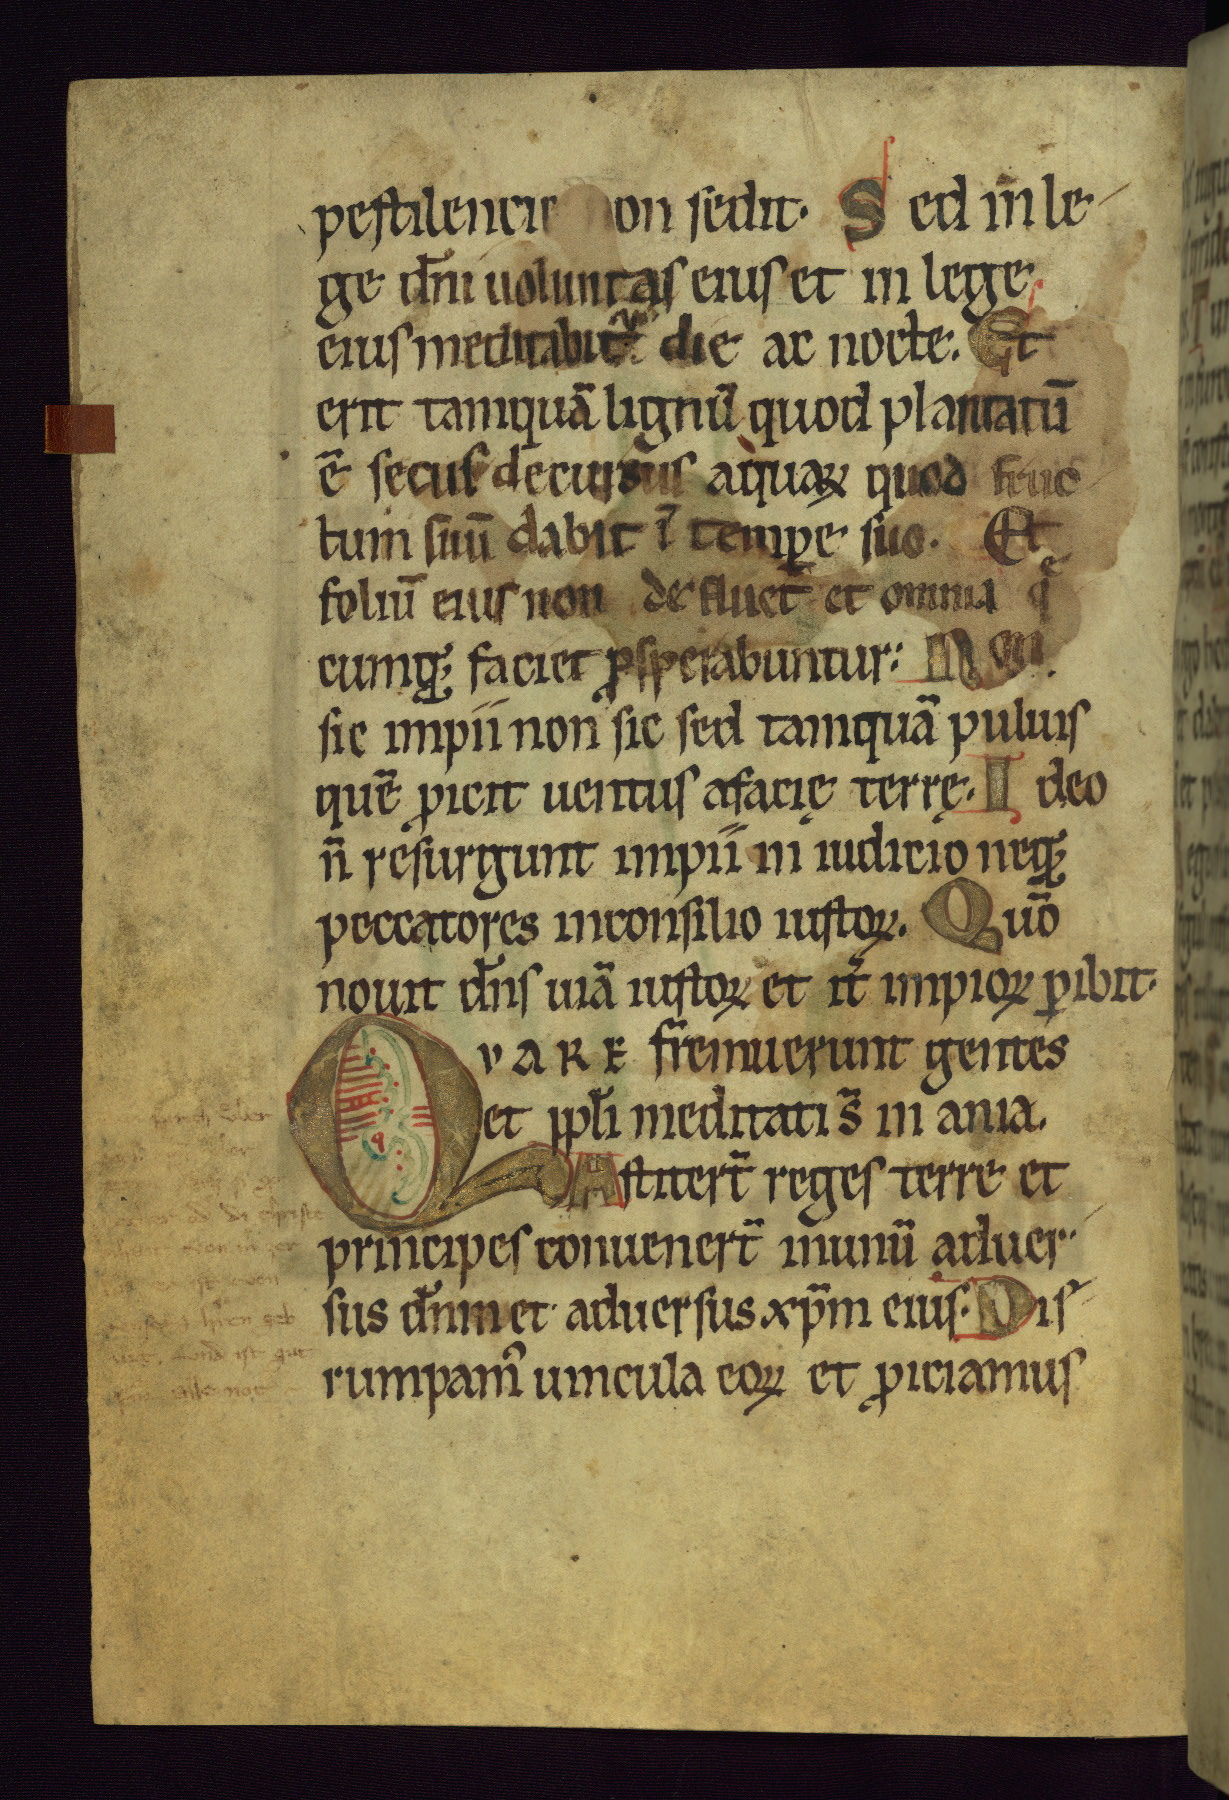 pestilencie non sedit. Sed in le
ge dn̄i uoluntas eius et in lege
eius meditabit᷑ die ac nocte. Et
erit tamquā lignū quod plantatū
ē secus decursus aquaꝝ quod fruc
tum suū dabit ī temꝑe suo. Et
foliū eius non defluet et omnia q̄
cumqꝫ faciet ꝓsperabuntur: Non
sic impii non sic sed tamquā puluis
quē ꝓicit uentus afacię terrę. Ideo
n̄ resurgunt impii in iudicio neqꝫ
peccatores inconsilio iustoꝝ. Quō
nouit dn̄s uiā iustoꝝ et it̄ impioꝝ ꝑibit.
QVARE fremuerunt gentes
et ppl̄i meditati s̄ in ania.
Astitert̄ reges terre et
principes conuenert̄ inunū aduer
sus dn̄m et aduersus xp̄m eius. Dis
rumpam᷒ uincula eoꝝ et ꝓiciamus